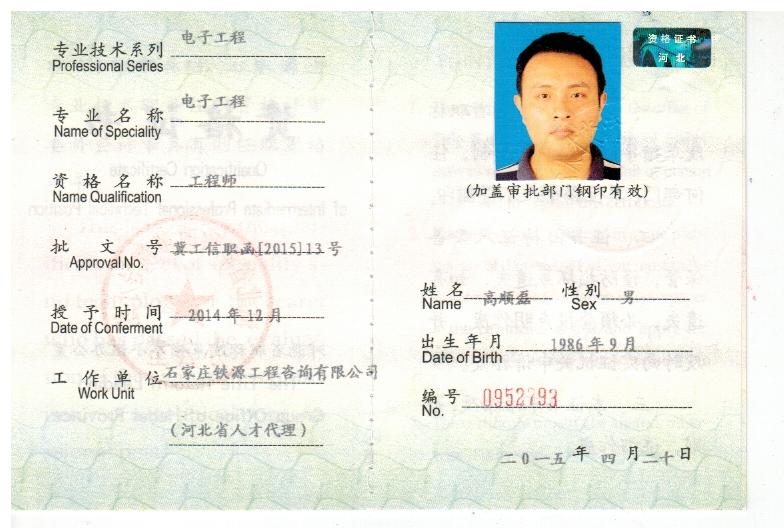 专业技术系列 电子工程
Professional Series
专业名称 电子工程
Name of Speciality
资格名称 工程师
Name Qualification
批文号 冀工信职函[2015]13号
Approval No.
授予时间 2014年12月
Date of Conferment
工作单位 石家庄铁源工程咨询有限公司
Work Unit
(河北省人才代理)
资格证书
河北
(加盖审批部门钢印有效)
姓名 高顺磊 性别 男
Name Sex
出生年月 1986年9月
Date of Birth
编号 0952793
No.
二〇一五年四月二十日